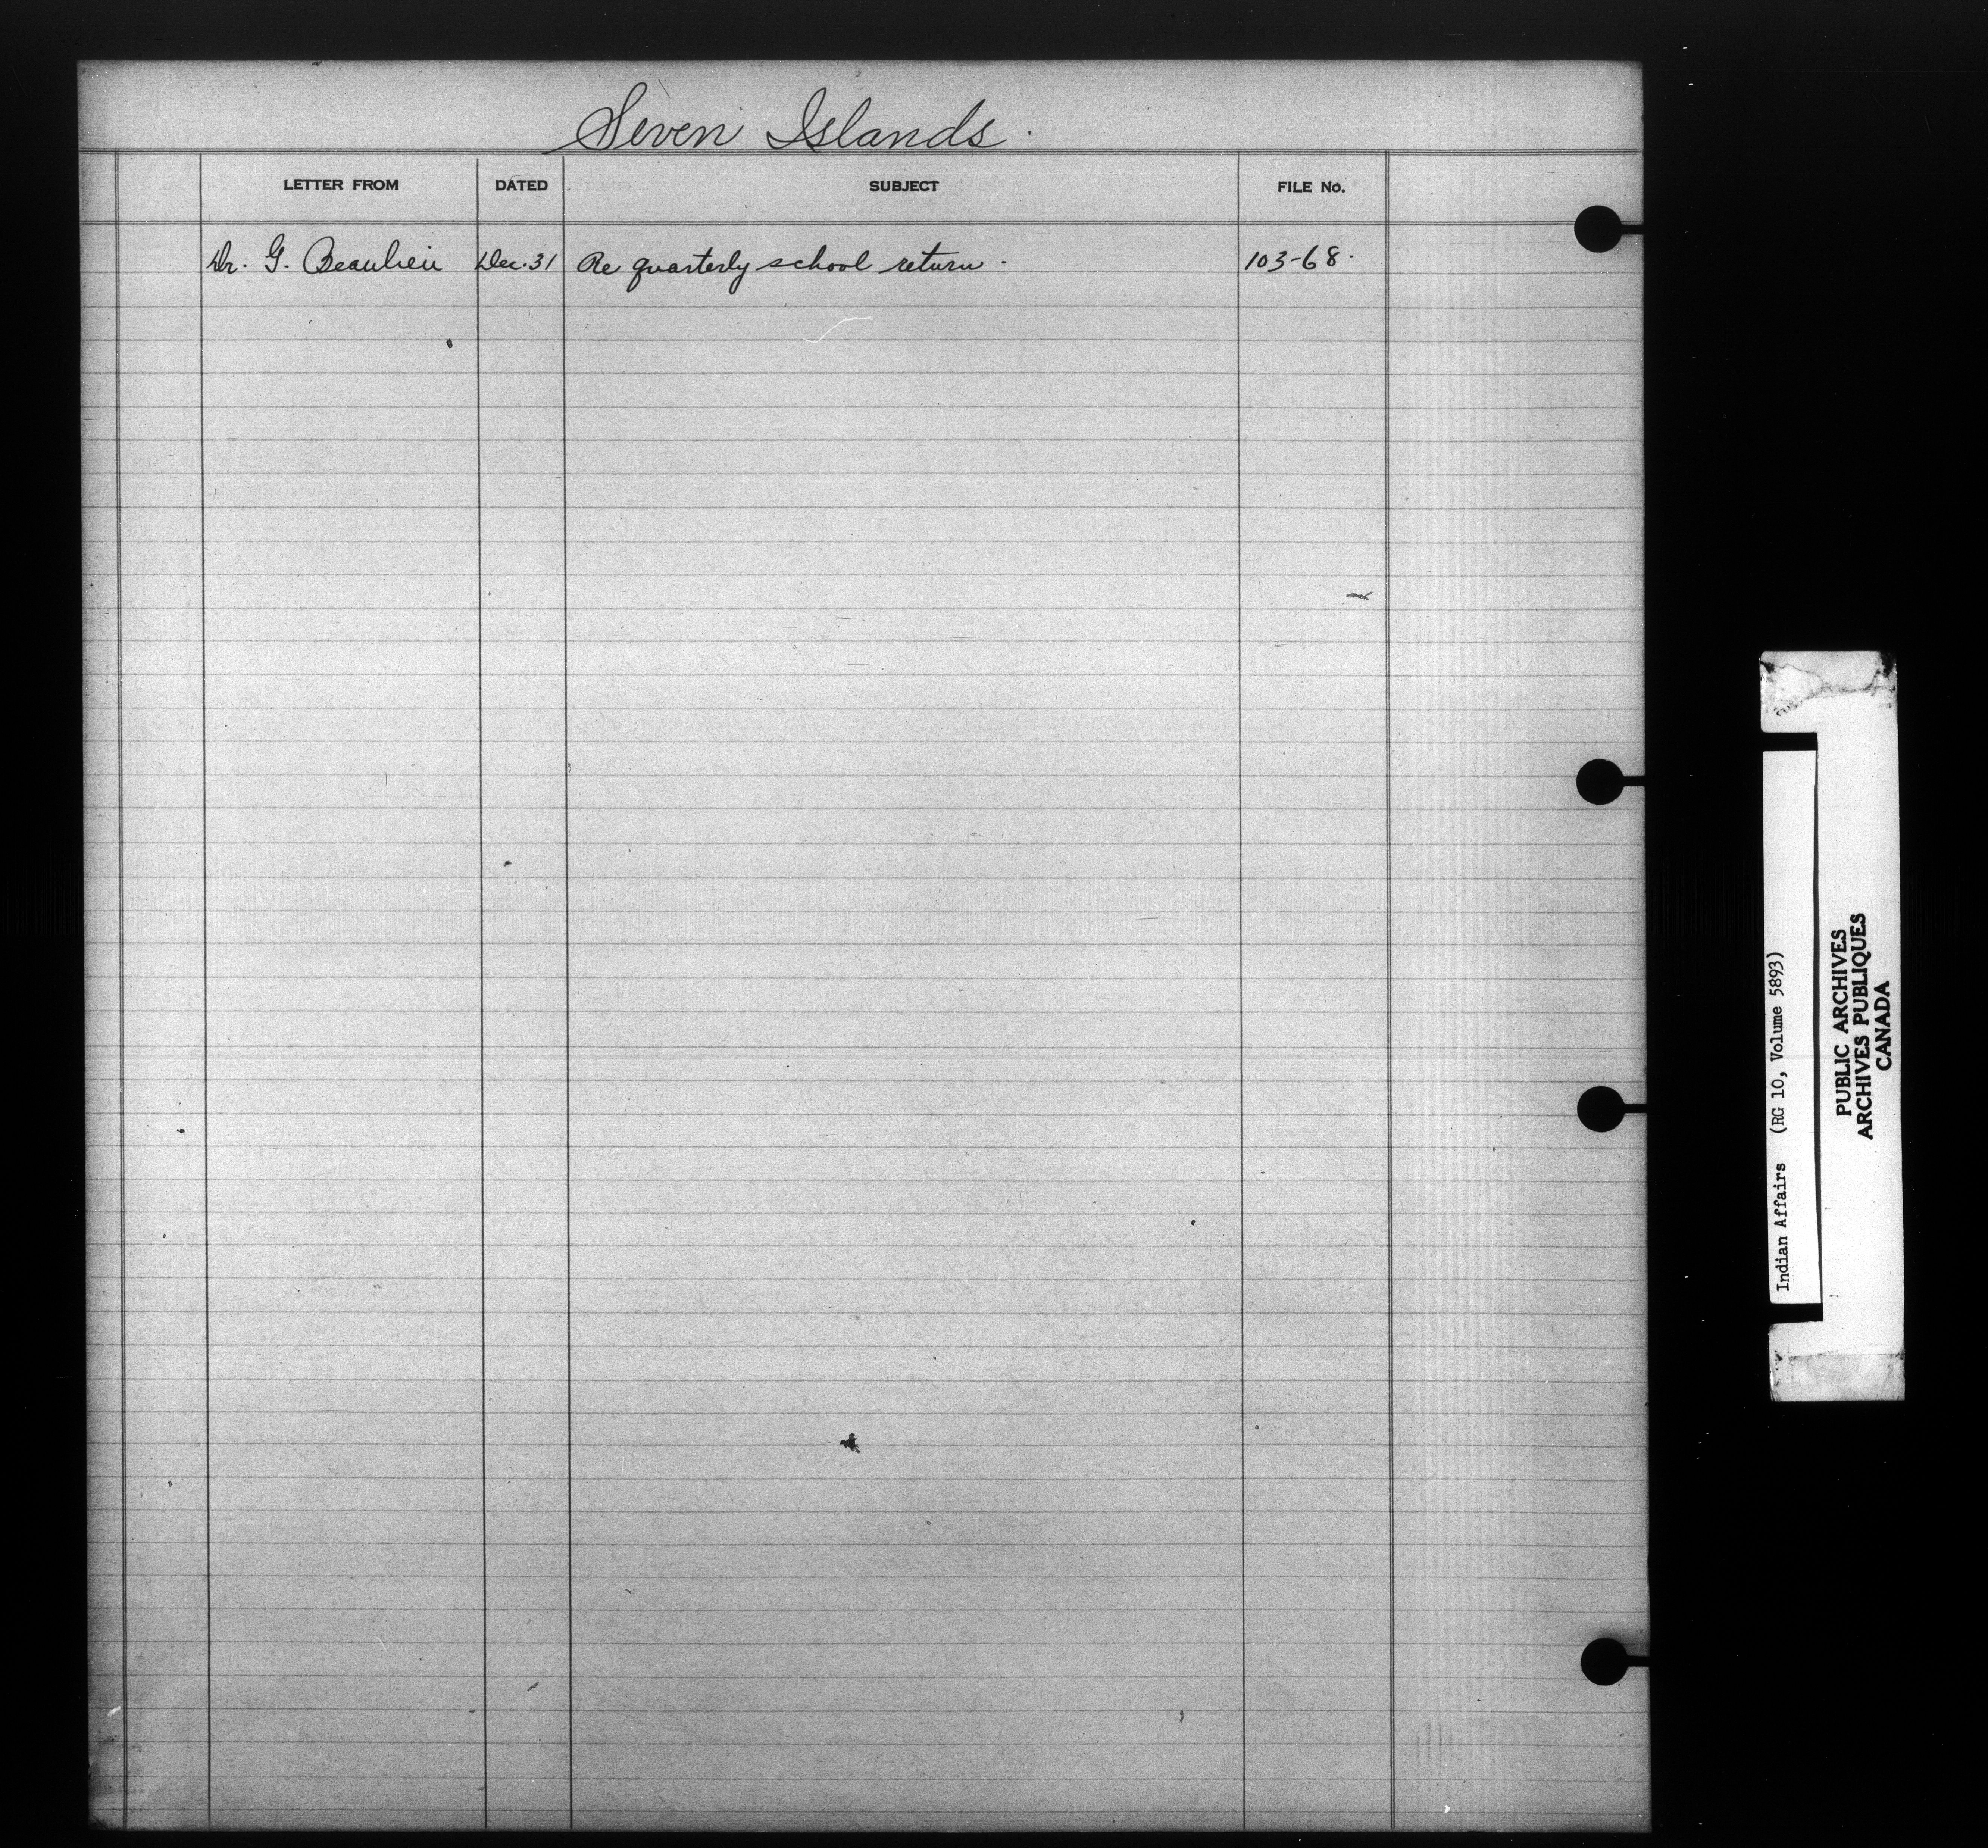 Seven Islands.
LETTER FROM DATED SUBJECT FILE No.
Dr. G. Beaulieu Dec. 31 Re quarterly school return. 103-68.
Indian Affairs (RG 10, Volume 5893)
PUBLIC ARCHIVES
ARCHIVES PUBLIQUES
CANADA